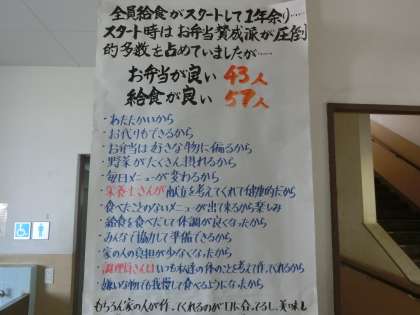 全員給食がスタートして1年余り……
スタート時はお弁当賛成派が圧倒
的多数を占めていましたが……
お弁当が良い 43人
給食が良い 57人
・あたたかいから
・お代りもできるから
・お弁当は好きな物に偏るから
・野菜がたくさん摂れるから
・毎日メニューが変わるから
・栄養士さんが献立を考えてくれて健康的だから
・食べたことのないメニューが出て来るから楽しみ
・給食を食べだして体調が良くなったから
・みんなで協力して準備できるから
・家の人の負担が少なくなったから
・調理員さんはいつも私達の体のことを考えて作ってくれるから
・嫌いな物でも我慢して食べるようになったから
もちろん家の人が作ってくれるのが口に合ってるし、美味し